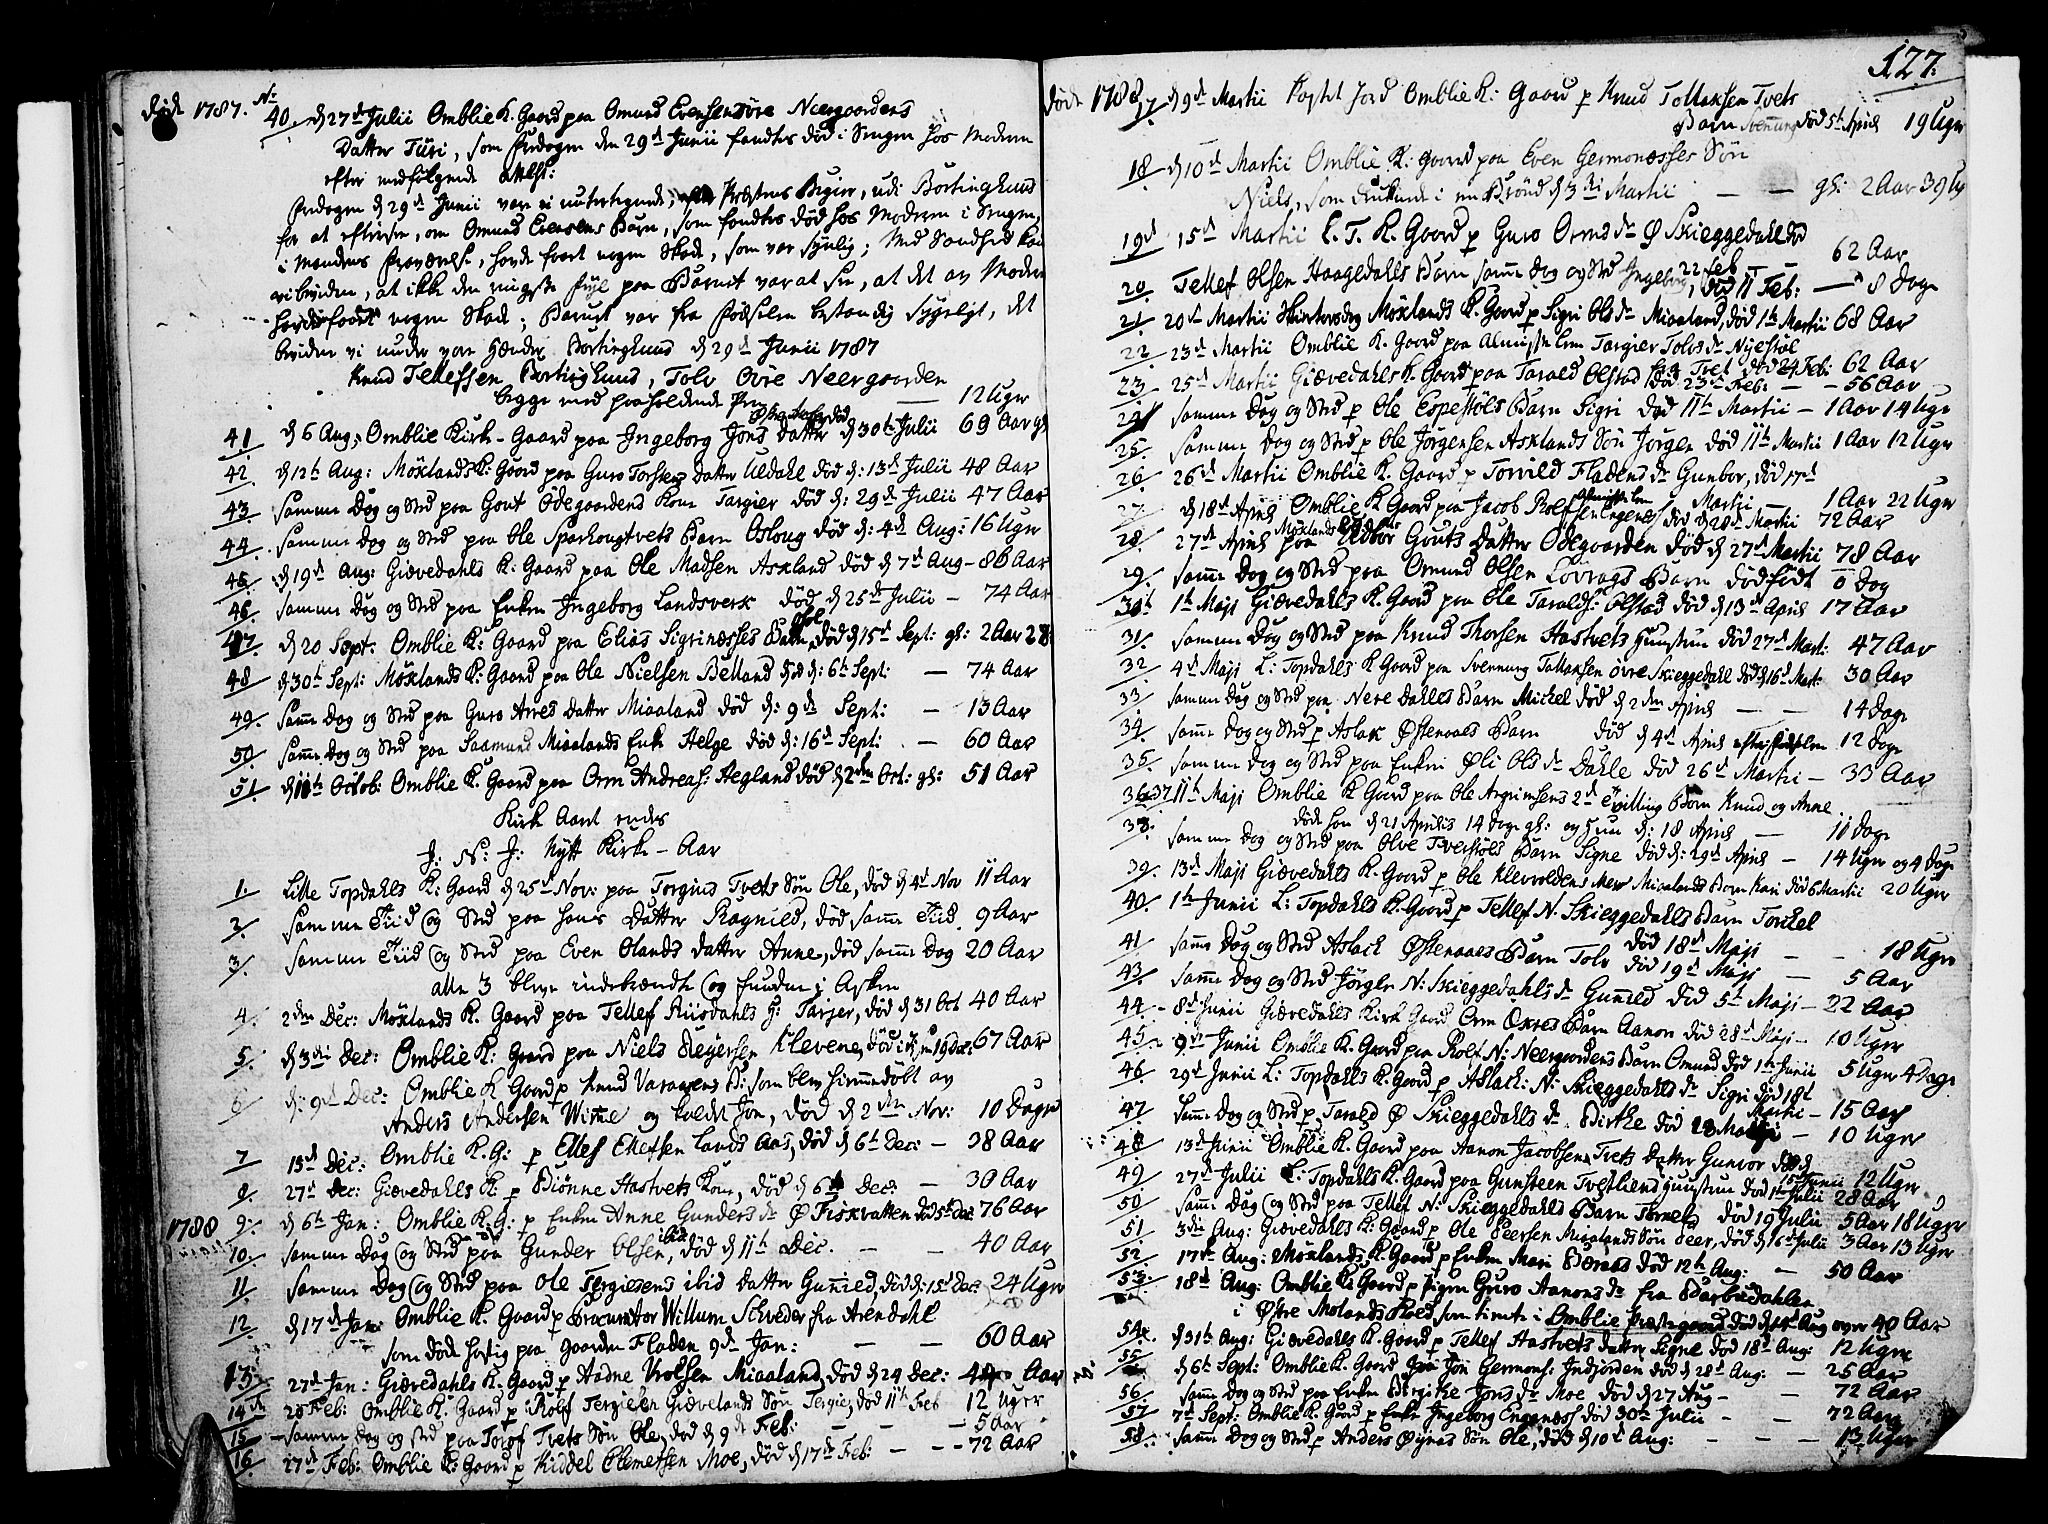 død 1787. No
40. d 27d Julii Omblie K. Gaard paa Omund Evensen øvre Neergaardens
Datter Turi, som Fredagen den 29d Junii fandtes død i Sengen hos Moderen
efter medfølgende Attest:
Fredagen d 29d Junii var vi undertegnede, Præstens Begier, udi Bortinghuus
for at eftersee, om Omund Evensens Barn, som fandtes død hos Moderen i Sengen,
i Mandens Fraværelse, havde faaet nogen Skade, som var synlig; Med Sandhed kan
vi bevidne, at ikke den ringeste paa Barnet var at see, at det av Moderen
havde faaet nogen Skade; Barnet var fra Fødselen bestandig sygeligt, det
bevidner vi under vore Hænder Bortinghuus d 29d Junii 1787
Knud Tellefsen Bortinghuus, Tolv Øvre Neergaarden
begge med paaholdende Pen — 12 Uger
41 d 6 Aug: Omblie Kirk-Gaard paa Ingeborg Jons Datter død d 30th Julii 69 Aar
42. d 12th Aug: Moxlands K: Gaard paa Guro Torsters Datter Uldahl død d: 13d Julii 48 Aar
43. samme Dag og Sted paa Gout Ødegaardens Kone Targier død d: 29d Julii 47 Aar
44. samme Dag og Sted paa Ole Sparhougtvets Barn Asloug død d: 4d Aug: 16 Uger
45. d 19d Aug: Giævedahls K: Gaard paa Ole Madsen Askland død d 7d Aug - 86 Aar
46. samme Dag og Sted paa Enken Ingeborg Landsverk død d 25d Julii - 74 Aar
47. d 20 Sept. Omblie K: Gaard paa Elias Sigrinæsses Barn, død d 15d Sept: gl: 2 Aar 28
48 d 30th Sept: Moxlands K: Gaard paa Ole Nielsen Belland død d: 6th Sept: — 74 Aar
49. Samme Dag og Sted paa Guro Arnes Datter Miaaland død d: 9d Sept: — 13 Aar
50 Samme Dag og Sted paa Saamund Miaalands Enke Helge død d: 16d Sept: — 60 Aar
51. d 11th Octob: Omblie K: Gaard paa Orm Andreass: Aegland død d 2den Oct: gl: 51 Aar
Kirk Aaret endes
J: N: J: Nytt Kirke-Aar
1. Lille Topdahls K: Gaard d 25d Nov: paa Torgius Tvets Søn Ole, død d 4d Nov 11 Aar
2. samme Tiid og Sted paa hans Datter Ragnild, død samme Tiid 9 Aar
3. samme Tiid og Sted paa Even Olands Datter Anne, død samme Dag 20 Aar
alle 3 bleve indebrændte og fundne i Asken
4. 2den Dec: Moxlands K. Gaard paa Tellef Riisdahls H: Tarjer, død d 31 Oct 40 Aar
5. d 3die Dec: Omblie K: Gaard paa Niels Klevene, død 67 Aar
6 d: 9d Dec: Omblie K Gaard p Knud Varaaens B: som blev hiemmedøbt av
Anders Andersen Wine og kaldt Jon, død d 2den Nov: 10 Dager
7 15d Dec: Omblie K. G: p Ellef Ellefsen Lands Aas, død d 6th Dec: — 38 Aar
8. 27d Dec: Giævedahls K. p Biønne Hastvets Kone, død d 6d Dec: — 30 Aar
1788 9. d 6th Jan: Omblie K. G: p Enken Anne Gunders dr Ø Fiskvatten død 5th Dec 76 Aar
10. samme Dag og Sted paa Gunder Olsen ibid, død d 11th Dec. — 40 Aar
11 samme Dag og Sted paa Ole Tergiesens ibid Datter Gunild, død d: 15d Dec: 24 Uger
12 d 17d Jan: Omblie K. Gaard p Procurator Willum Schrøder fra Arendahl
som døde hastig paa Gaarden Fladen 9d Jan: — 60 Aar
13. 27d Jan: Giævedahls K. Gaard p Aadne Miaaland, død d 24 Dec: 44 Aar
14d 20 Feb: Omblie K. Gaard p Rolf Tergiesen Giævelands Søn Tergie, død 11th Feb 12 Uger
15 samme Dag og Sted paa Torof Tvets Søn Ole, død d 9d Feb: — 5 Aar
16 27d Feb: Omblie K: Gaard p Kiddel Clemetsen Moe, død d 17d Feb: — 72 Aar
127.
døde 1788 17 d 9d Martii Kastet Jord Omblie K: Gaard p Knud Tollaksen Tvets
Barn Svennung død 5th April 19 Uger
18 d 10d Martii Omblie K: Gaard paa Even Germonæsses Søn
Niels, som druknede i en Brønd d 3die Martii — gl: 2 Aar 39 Ug
19d 15d Martii L. T. K. Gaard p Guro Orms dr Ø Skieggedahl død
22 Feb — 62 Aar
20 Tellef Olsen Haagedahls Barn samme Dag og Sted Ingeborg, død 11 Feb: — 8 Dage
21 20d Martii Skiertorsdag Moxlands K. Gaard p Sigri Ols dr Miaaland, død 1th Martii 68 Aar
22 23d Martii Omblie K. Gaard paa Almisse Lem Targier Tolvs dr Nyestøl
død 24 Feb: 62 Aar
23 25d Martii Giævedahls K. Gaard paa Tarald Olstad død 23d Feb: — 56 Aar
24 samme Dag og Sted p Ole Espestøls Barn Sigri død 11th Martii - 1 Aar 14 Uger
25. samme Dag og Sted p Ole Jørgensen Asklands Søn Jørgen død 11th Martii 1 Aar 12 Uger
26 26d Martii Omblie K. Gaard p Torvild Fladens dr Gunbor, død 17d
Martii 1 Aar 22 Uger
27 d 18d April Omblie K Gaard paa Jacob Rolfsen Engenes Almisselem død d 28d Martii 72 Aar
28 27d April Moxlands paa Udbor Gouts Datter Ødegaarden død d 27d Martii 78 Aar
29. samme Dag og Sted paa Omund Olsen Løvrags Barn dødfødt 0 Dag
30th 1th Maji Giævedahls K. Gaard paa Ole Taralds: Olstad død d 13d April 17 Aar
31. samme Dag og Sted paa Knud Thorsen Hastvets Hunstrue død 27d Mart: 47 Aar
32 4d Maji L: Topdahls K Gaard paa Svennung Tallaksen øvre Skieggedahl død d 16d Mart: 30 Aar
33. samme Dag og Sted paa Nere Dahles Barn Mickel død d 2den April — 14 Dage
34. samme Dag og Sted p Aslak Østenaaes Barn død d 4d April 12 Dage
35. samme Dag og Sted paa Enken Øli Ols dr Dahle død 26d Martii — 33 Aar
36-37 11th Maji Omblie K Gaard paa Ole Asgrimsens 2de Tvilling Børn Knud og Anne
døde han d 21 Aprilis 14 Dage gl: og Hun d: 18 April — 11 Dage
38. samme Dag og Sted paa Olve Tverstøls Barn Signe død d: 29d April — 14 Uger og 4 Dage
39. 13d Maji Giævedahls K. Gaard p Ole Klevvoldens Miaalands Barn Kari død 6 Martii 20 Uger
40. 1th Junii L: Topdahls K. Gaard p Tellef N. Skieggedahls Barn Torckel
død 18d Maji — 18 Uger
41 samme Dag og Sted Aslack Østenaaes Barn Tolv død 19d Maji — 5 Aar
43. samme Dag og Sted Jørgen N: Skieggedahls dr Gunild død 5th Maji — 22 Aar
44 - 8d Junii Giævedahls Kirk Gaard Orm Oxnes Barn Aanon død 28d Maji — 10 Uger
45 - 9d Junii Omblie K. Gaard paa Rolf N: Neergaardens Barn Omund død 1th Junii 5 Uger 4 Dage
46. 29d Junii L: Topdahls K. Gaard p Aslack: N: Skieggedahls dr Sigri død 18d
Martii — 15 Aar
47 samme Dag og Sted p Tarald Ø Skieggedahls dr Birthe død 23 — 10 Uger
48 13d Junii Omblie K. Gaard paa Aanon Jacobsen Tvets Datter Gunvor død
15 Junii 12 Uger
49 27d Julii L: Topdahls K. Gaard paa Gunsteen Tvetliens Hunstrue død 1th Julii 28 Aar
50 samme Dag og Sted paa Tellef N: Skieggedahls Barn død 19 Julii 5 Aar 18 Uger
51 3die Aug: Giævedahls K: Gaard p Ole Peersen Miaalands Søn Peer, død d 16d Julii 3 Aar 13 Uger
52 17d Aug: Moxlands K. Gaard p Enken Mari Beraas død 12th Aug: — 50 Aar
53. 18d Aug: Omblie K. Gaard p Pigen Guro Aanons dr fra Barbudahlen
i Østre Molands Sogn som tiente i Omblie Præstegaard død d 14d Aug over 40 Aar
54. d 31th Aug: Giævedahls K. Gaard p Tellef Hastvets Datter Signe død 18d Aug: 12 Uger
55 d 6th Sept: Omblie K: Gaard paa Jon Germons: Indjorden død d 28d Aug: — 25 Aar
56 samme Dag og Sted paa Enken Birgitte Jons dr Moe død d 27 Aug — 72 Aar
57 7d Sept: Omblie K. Gaard p Enke Ingeborg Engenæss død 30d Julii — 72 Aar
58. samme Dag og Sted p Anders Øynæs Søn Ole, død d 10d Aug: — 13 Uger